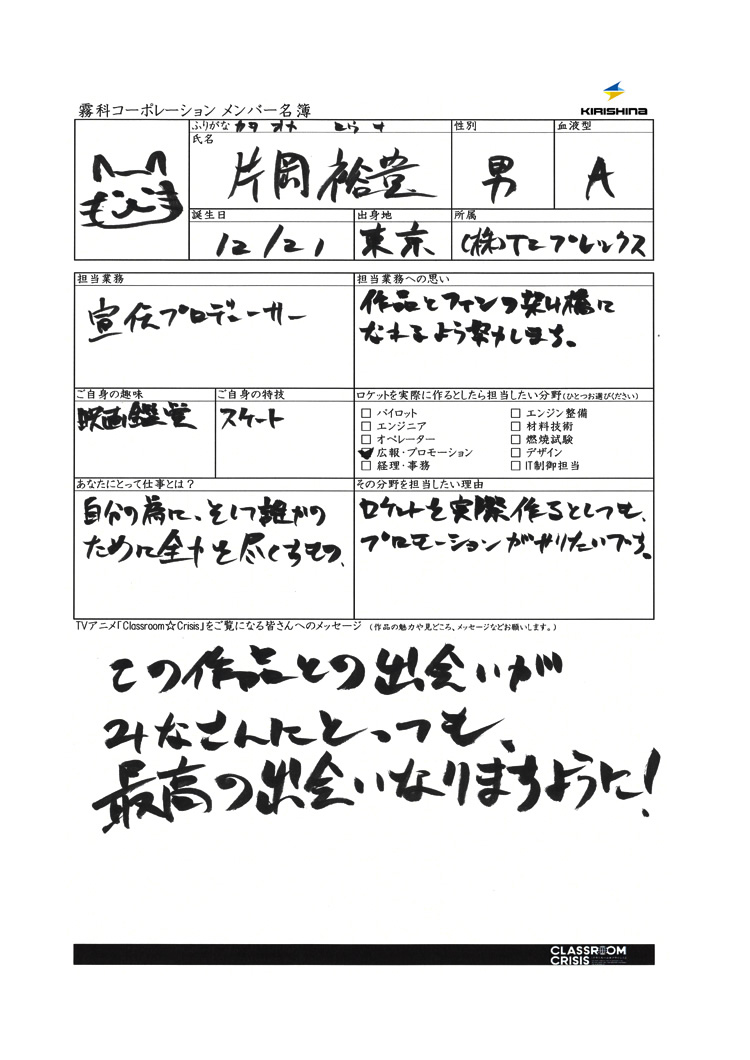 霧科コーポレーション メンバー名簿
KIRISHINA
ふりがな
氏名
片岡裕堂
性別
男
血液型
A
誕生日
12/21
出身地
東京
所属
(株)アニプレックス
担当業務
宣伝プロデューサー
担当業務への思い
作品とファンの架け橋に
なれるよう努力します。
ご自身の趣味
映画鑑賞
ご自身の特技
スケート
ロケットを実際に作るとしたら担当したい分野(ひとつお選びください)
□ パイロット
□ エンジニア
□ オペレーター
☑ 広報・プロモーション
□ 経理・事務
□ エンジン整備
□ 材料技術
□ 燃焼試験
□ デザイン
□ IT制御担当
あなたにとって仕事とは?
自分の為に、そして誰かの
ために全力を尽くすもの、
その分野を担当したい理由
ロケットを実際作るとしても、
プロモーションがやりたいです。
TVアニメ「Classroom☆Crisis」をご覧になる皆さんへのメッセージ (作品の魅力や見どころ、メッセージなどお願いします。)
この作品との出会いが
みなさんにとっても、
最高の出会いなりますように!
CLASSROOM
CRISIS